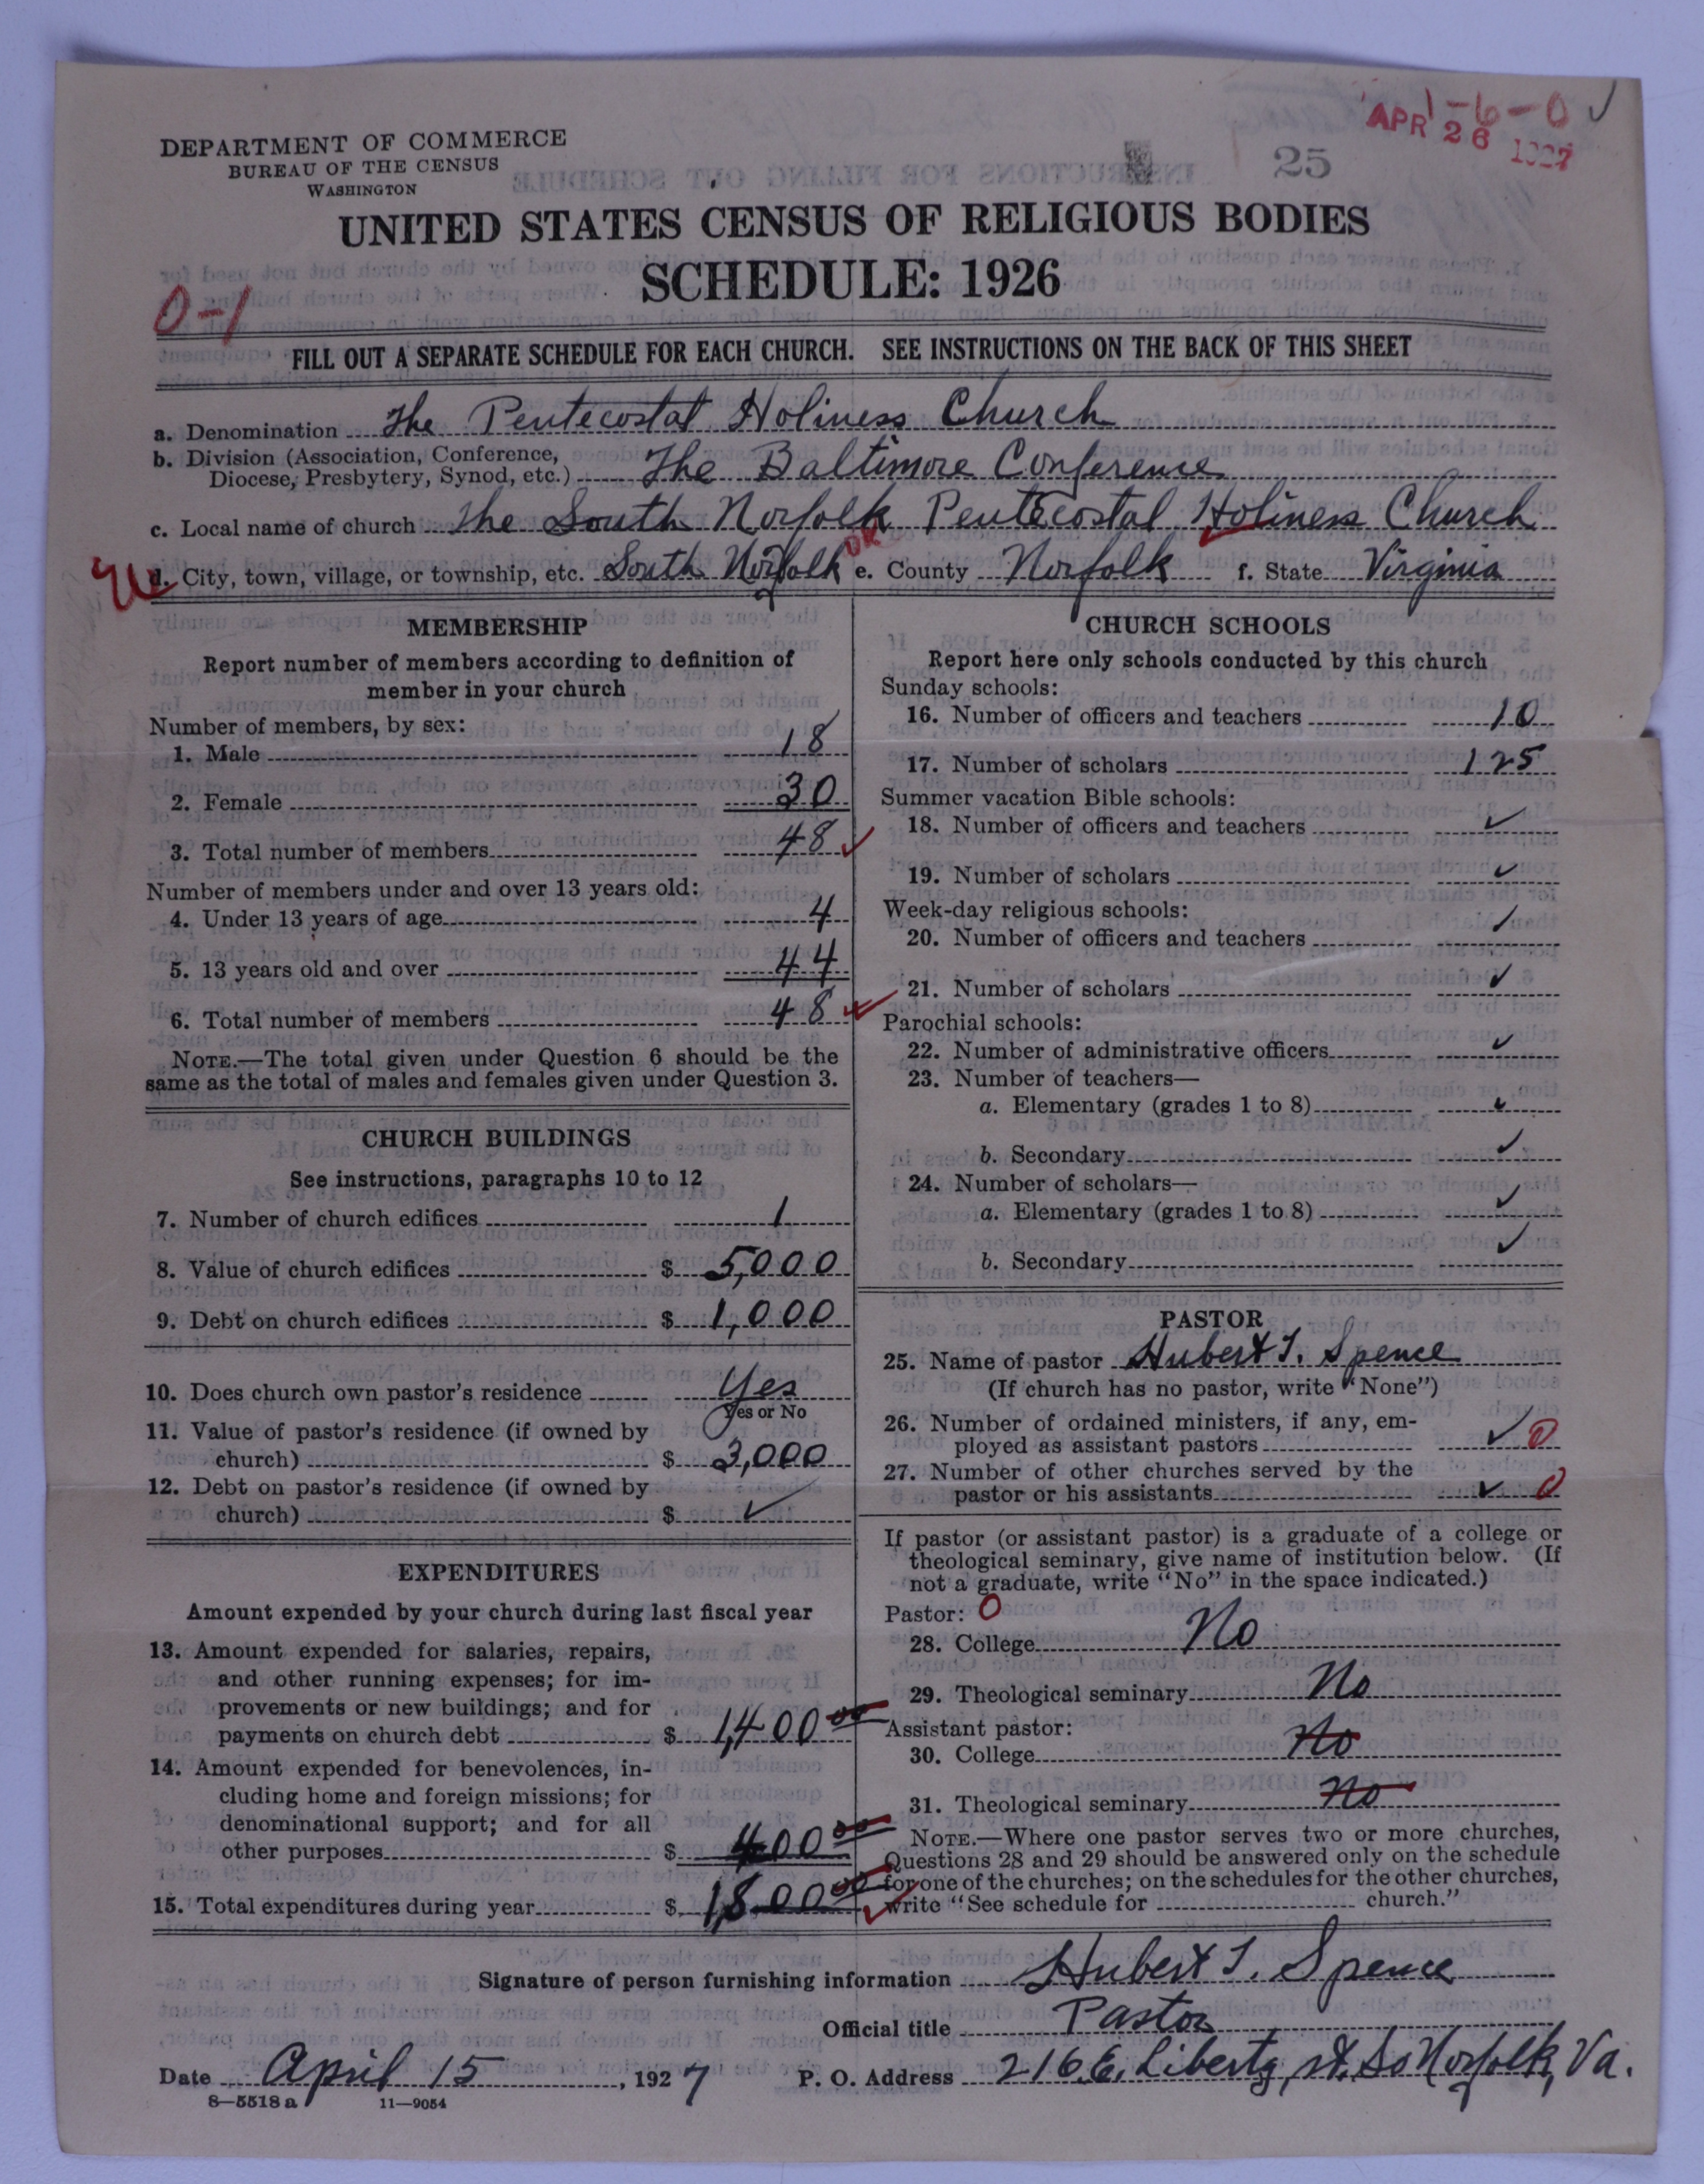 1-6-0 ✓
APR 26 1927
DEPARTMENT OF COMMERCE
BUREAU OF THE CENSUS
WASHINGTON
25
UNITED STATES CENSUS OF RELIGIOUS BODIES
SCHEDULE: 1926
0-1
FILL OUT A SEPARATE SCHEDULE FOR EACH CHURCH. SEE INSTRUCTIONS ON THE BACK OF THIS SHEET
a. Denomination The Pentecostal Holiness Church
b. Division (Association, Conference,
Diocese, Presbytery, Synod, etc.) The Baltimore Conference
c. Local name of church The South Norfolk Pentecostal Holiness Church
d. City, town, village, or township, etc. South Norfolk e. County Norfolk f. State Virginia
MEMBERSHIP
Report number of members according to definition of
member in your church
Number of members, by sex:
1. Male 18
2. Female 30
3. Total number of members 48 ✓
Number of members under and over 13 years old:
4. Under 13 years of age 4
5. 13 years old and over 44
6. Total number of members 48 ✓
NOTE.—The total given under Question 6 should be the
same as the total of males and females given under Question 3.
CHURCH BUILDINGS
See instructions, paragraphs 10 to 12
7. Number of church edifices 1
8. Value of church edifices $ 5,000
9. Debt on church edifices $ 1,000
10. Does church own pastor's residence Yes
Yes or No
11. Value of pastor's residence (if owned by
church) $ 3,000
12. Debt on pastor's residence (if owned by
church) $ ✓
EXPENDITURES
Amount expended by your church during last fiscal year
13. Amount expended for salaries, repairs,
and other running expenses; for im-
provements or new buildings; and for
payments on church debt $ 1,400 00
14. Amount expended for benevolences, in-
cluding home and foreign missions; for
denominational support; and for all
other purposes $ 400 00
15. Total expenditures during year $ 1,800 00 ✓
CHURCH SCHOOLS
Report here only schools conducted by this church
Sunday schools:
16. Number of officers and teachers 10
17. Number of scholars 125
Summer vacation Bible schools:
18. Number of officers and teachers ✓
19. Number of scholars ✓
Week-day religious schools:
20. Number of officers and teachers ✓
21. Number of scholars ✓
Parochial schools:
22. Number of administrative officers ✓
23. Number of teachers—
a. Elementary (grades 1 to 8) ✓
b. Secondary ✓
24. Number of scholars—
a. Elementary (grades 1 to 8) ✓
b. Secondary ✓
PASTOR
25. Name of pastor Hubert T. Spence
(If church has no pastor, write "None")
26. Number of ordained ministers, if any, em-
ployed as assistant pastors ✓ 0
27. Number of other churches served by the
pastor or his assistants ✓ 0
If pastor (or assistant pastor) is a graduate of a college or
theological seminary, give name of institution below. (If
not a graduate, write "No" in the space indicated.)
Pastor: 0
28. College No
29. Theological seminary No
Assistant pastor:
30. College No
31. Theological seminary No
NOTE.—Where one pastor serves two or more churches,
Questions 28 and 29 should be answered only on the schedule
for one of the churches; on the schedules for the other churches,
write "See schedule for church."
Signature of person furnishing information Hubert T. Spence
Official title Pastor
Date April 15, 1927 P. O. Address 216 E. Liberty, St. So Norfolk, Va.
8—5518 a 11—9054